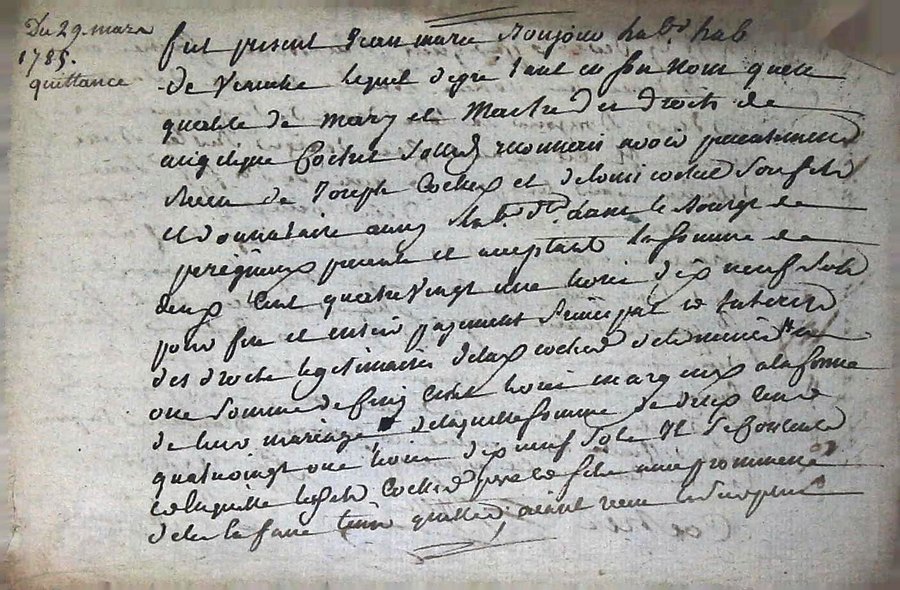 Du 29 mars
1785.
quittance
fut present Jean marie Roujou hab.t hab
de Veauche lequel de gre tant en son nom quen
qualité de mary et Maitre des droits de
angelique Cochet Sousd reconnoit avoir presentement
Receu de Joseph Cochet et de Louis cochet Son fils
et donnataire aussy hab.t dans le Bourg de
perigneux present et acceptant la somme de
deux Cent quatrevingt une livre dix neuf Sols
pour fin et entier payement principal et interets
des droits legitimaires de la cochet
une Somme de Cinq Cent livres a la forme
de leur mariage de laquelle Somme de deux Cent
quatrevingt une livre dix neuf Sols Il Se Contente
et en quitte lesd Cochet pere et fils avec promesse
de les en faire tenir quittes, aiant receu le Surplus